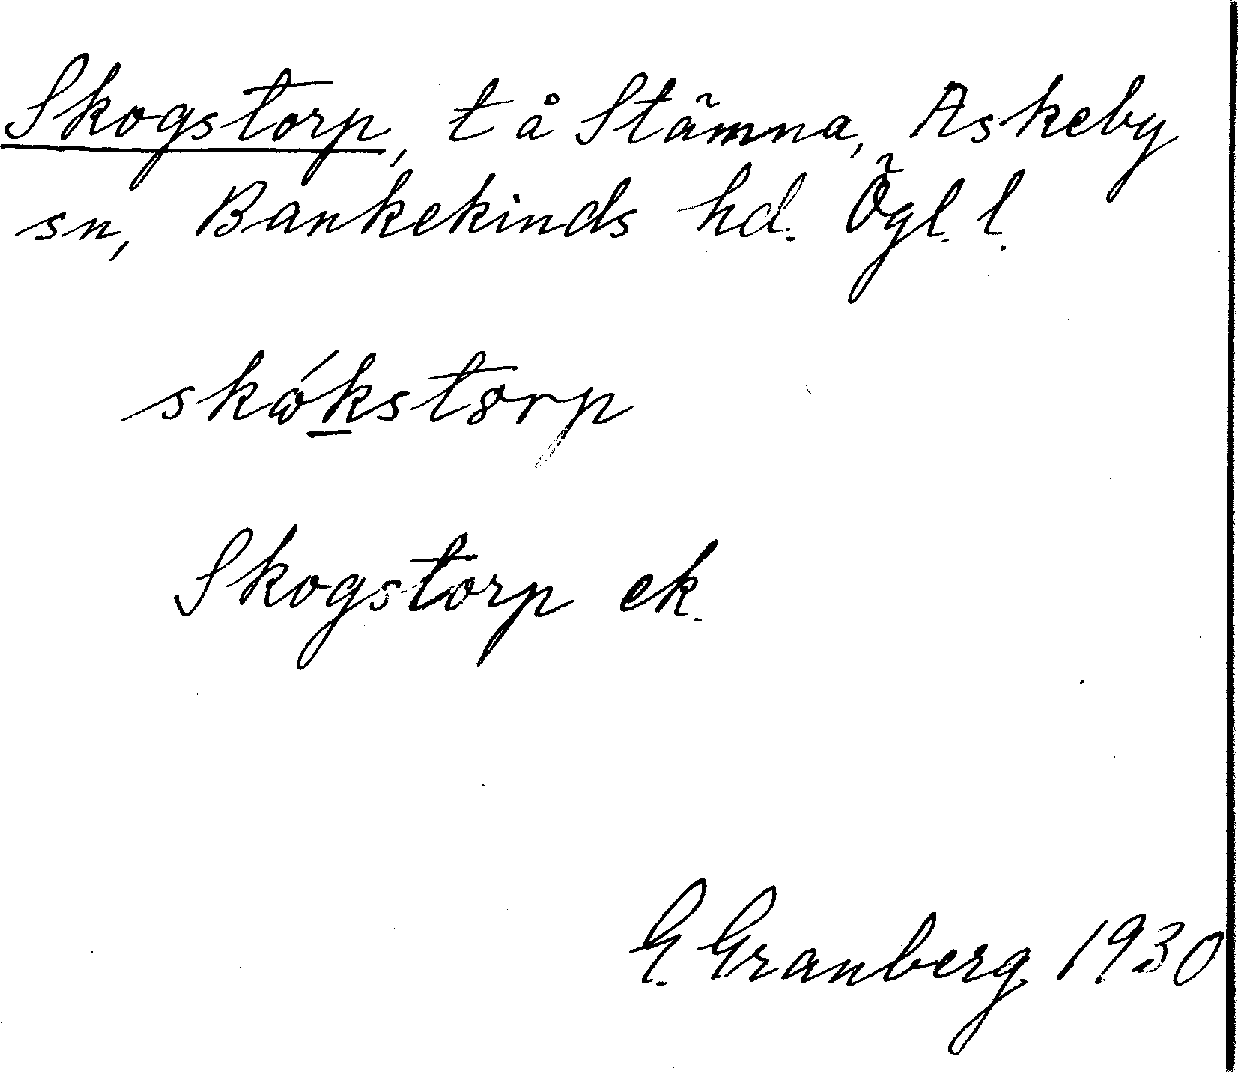 Skogstorp, t å Stämna, Askeby
sn, Bankekinds hd. Ögl. l.
skǿkstorp
Skogstorp ek.
G. Granberg 1930